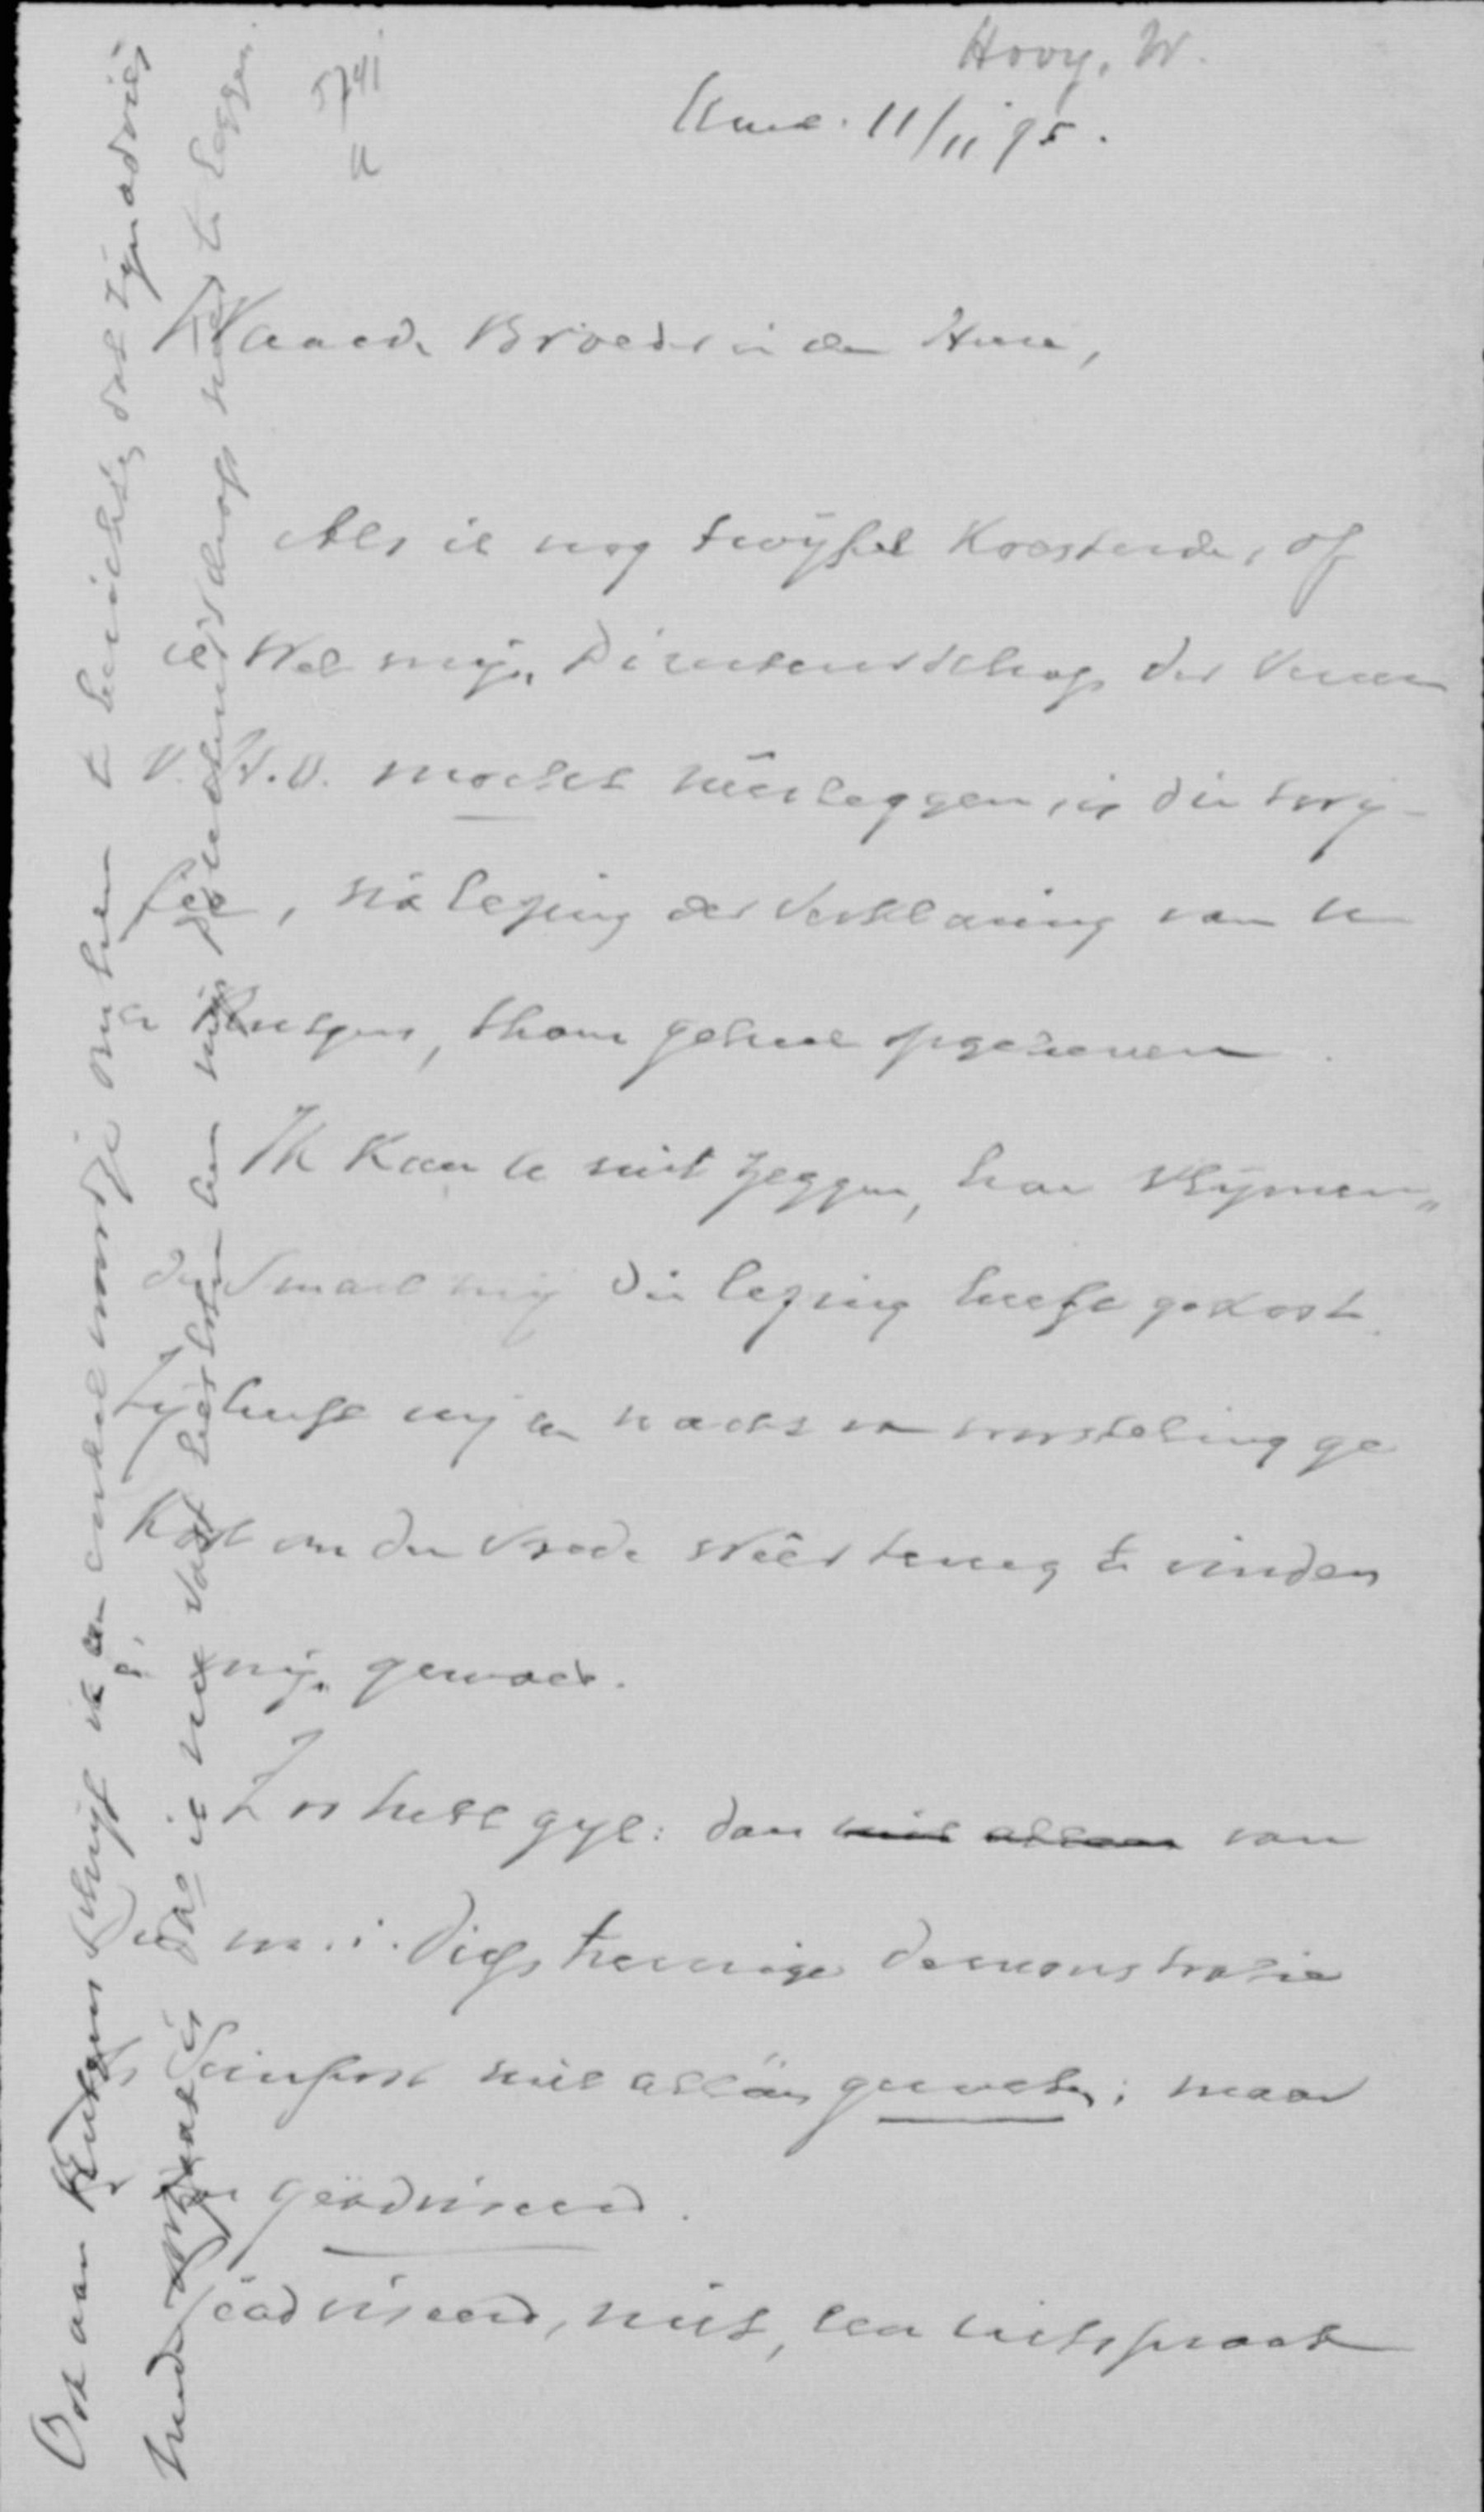 Hovy, W.
5741
Amst. 11/11 95.
Waarde Broeder in den Heere,
Als ik nog twijfel koesterde, of
ik wel mijn Directeurschap der Vereen
v. H.O. mocht neerleggen, is die twij-
fel, na lezing der Verklaring van U
en Rutgers, thans geheel opgeheven.
Ik kan U niet zeggen, hoe vlijmen„
de smart mij die lezing heeft gekost.
Zij heeft mij een nacht van worsteling ge
kost om den vrede weêr terug te vinden
in mijn gemoed.
Zoo hebt gijl: dan niet alleen van
de m.i. diep treurige demonstratie
in Seinpost niet alleen geweten; maar
geadviseerd.
Geadviseerd, niet, een uitspraak
Ook aan Rutgers schrijf ik een enkel woordje om hem te berichten, dat zijn advies
is dat ik nu vast besloten ben mijn Directeurschap neer te leggen.